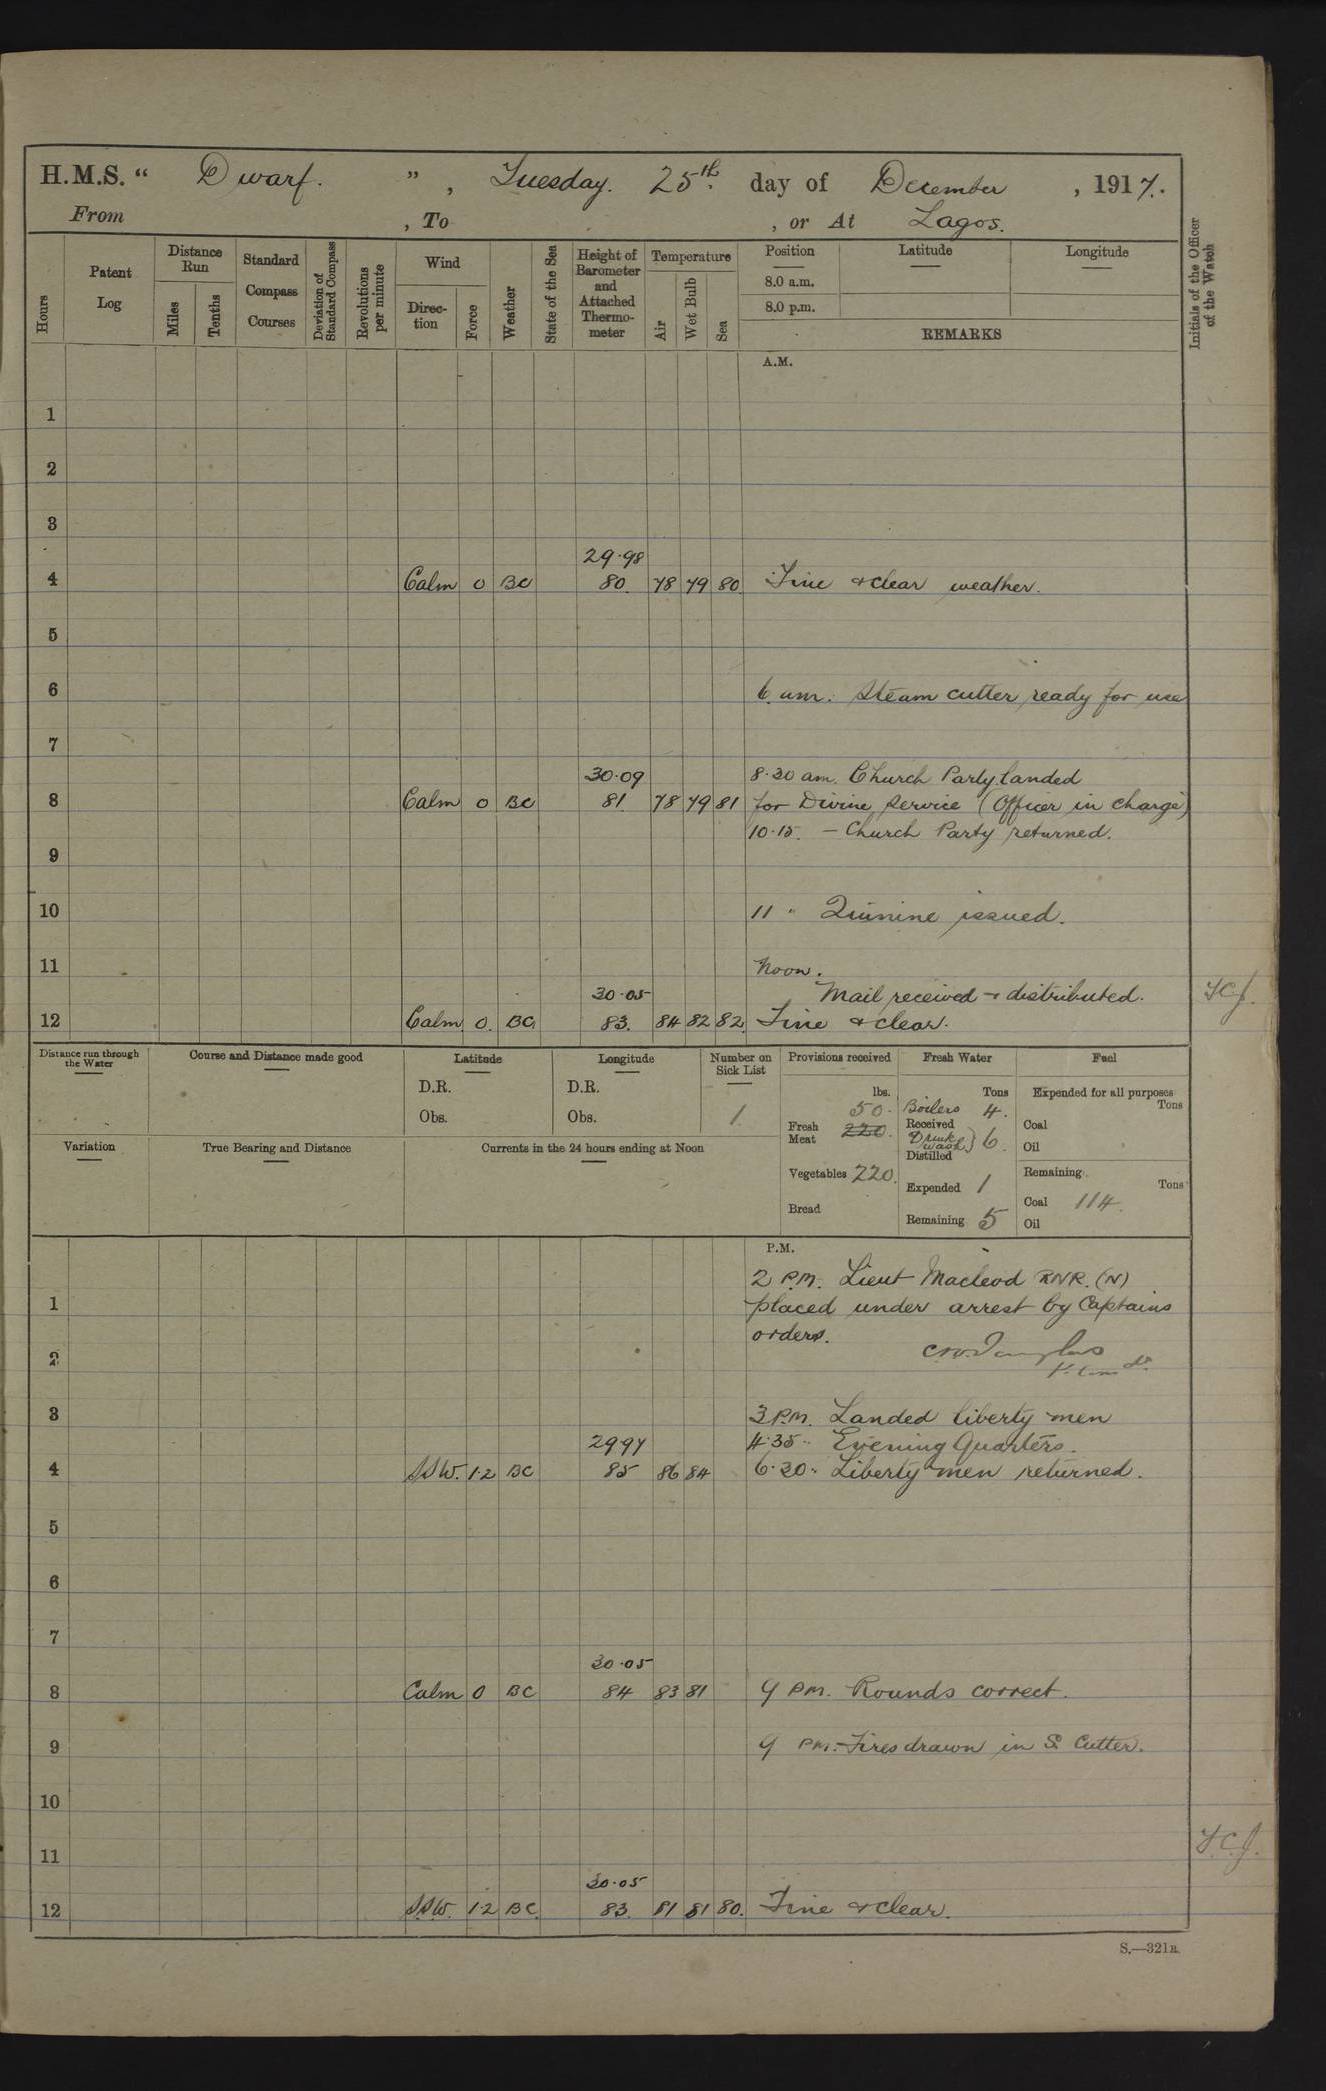 H.M.S. " Dwarf. ", Tuesday. 25th. day of December, 1917.
From , To , or At Lagos.
Hours
Patent Log
Distance Run
Miles
Tenths
Standard Compass Courses
Deviation of Standard Compass
Revolutions per minute
Wind
Direction
Force
Weather
State of the Sea
Height of Barometer and Attached Thermometer
Temperature
Air
Wet Bulb
Sea
Position
Latitude
Longitude
8.0 a.m.
8.0 p.m.
REMARKS
Initials of the Officer of the Watch
A.M.
1
2
3
29.98
4 Calm 0 BC 80. 78 79 80 Fine & clear weather.
5
6 6 am. Steam cutter ready for use
7
30.09 8.30 am. Church Party landed
8 Calm 0 BC 81. 78 79 81 for Divine Service (Officer in charge)
10.15. – Church Party returned.
9
10 11 " Quinine issued.
11 Noon.
30.05 Mail received & distributed.
12 Calm 0. BC 83. 84 82 82 Fine & clear.
Distance run through the Water
Course and Distance made good
Latitude
D.R.
Obs.
Longitude
D.R.
Obs.
Number on Sick List
1
Provisions received
lbs.
50.
Fresh Meat 220.
Vegetables 220.
Bread
Fresh Water
Tons
Boilers 4.
Received
Drink wash } 6.
Distilled
Expended 1
Remaining 5
Fuel
Expended for all purposes
Tons
Coal
Oil
Remaining.
Tons
Coal 114.
Oil
Variation
True Bearing and Distance
Currents in the 24 hours ending at Noon
P.M.
2 P.M. Lieut Macleod RNR. (N)
1 placed under arrest by Captains
orders.
2
3 3 P.M. Landed liberty men
29.97 4.35 " Evening Quarters.
4 SSW. 1.2 BC 85 86 84 6.30 " Liberty men returned.
5
6
7
30.05
8 Calm 0 BC 84 83 81 9 PM. Rounds correct.
9 9 PM. Fires drawn in S. Cutter.
10
11
30.05
12 SSW. 1.2 BC. 83. 81 81 80. Fine & clear.
S.—321B.